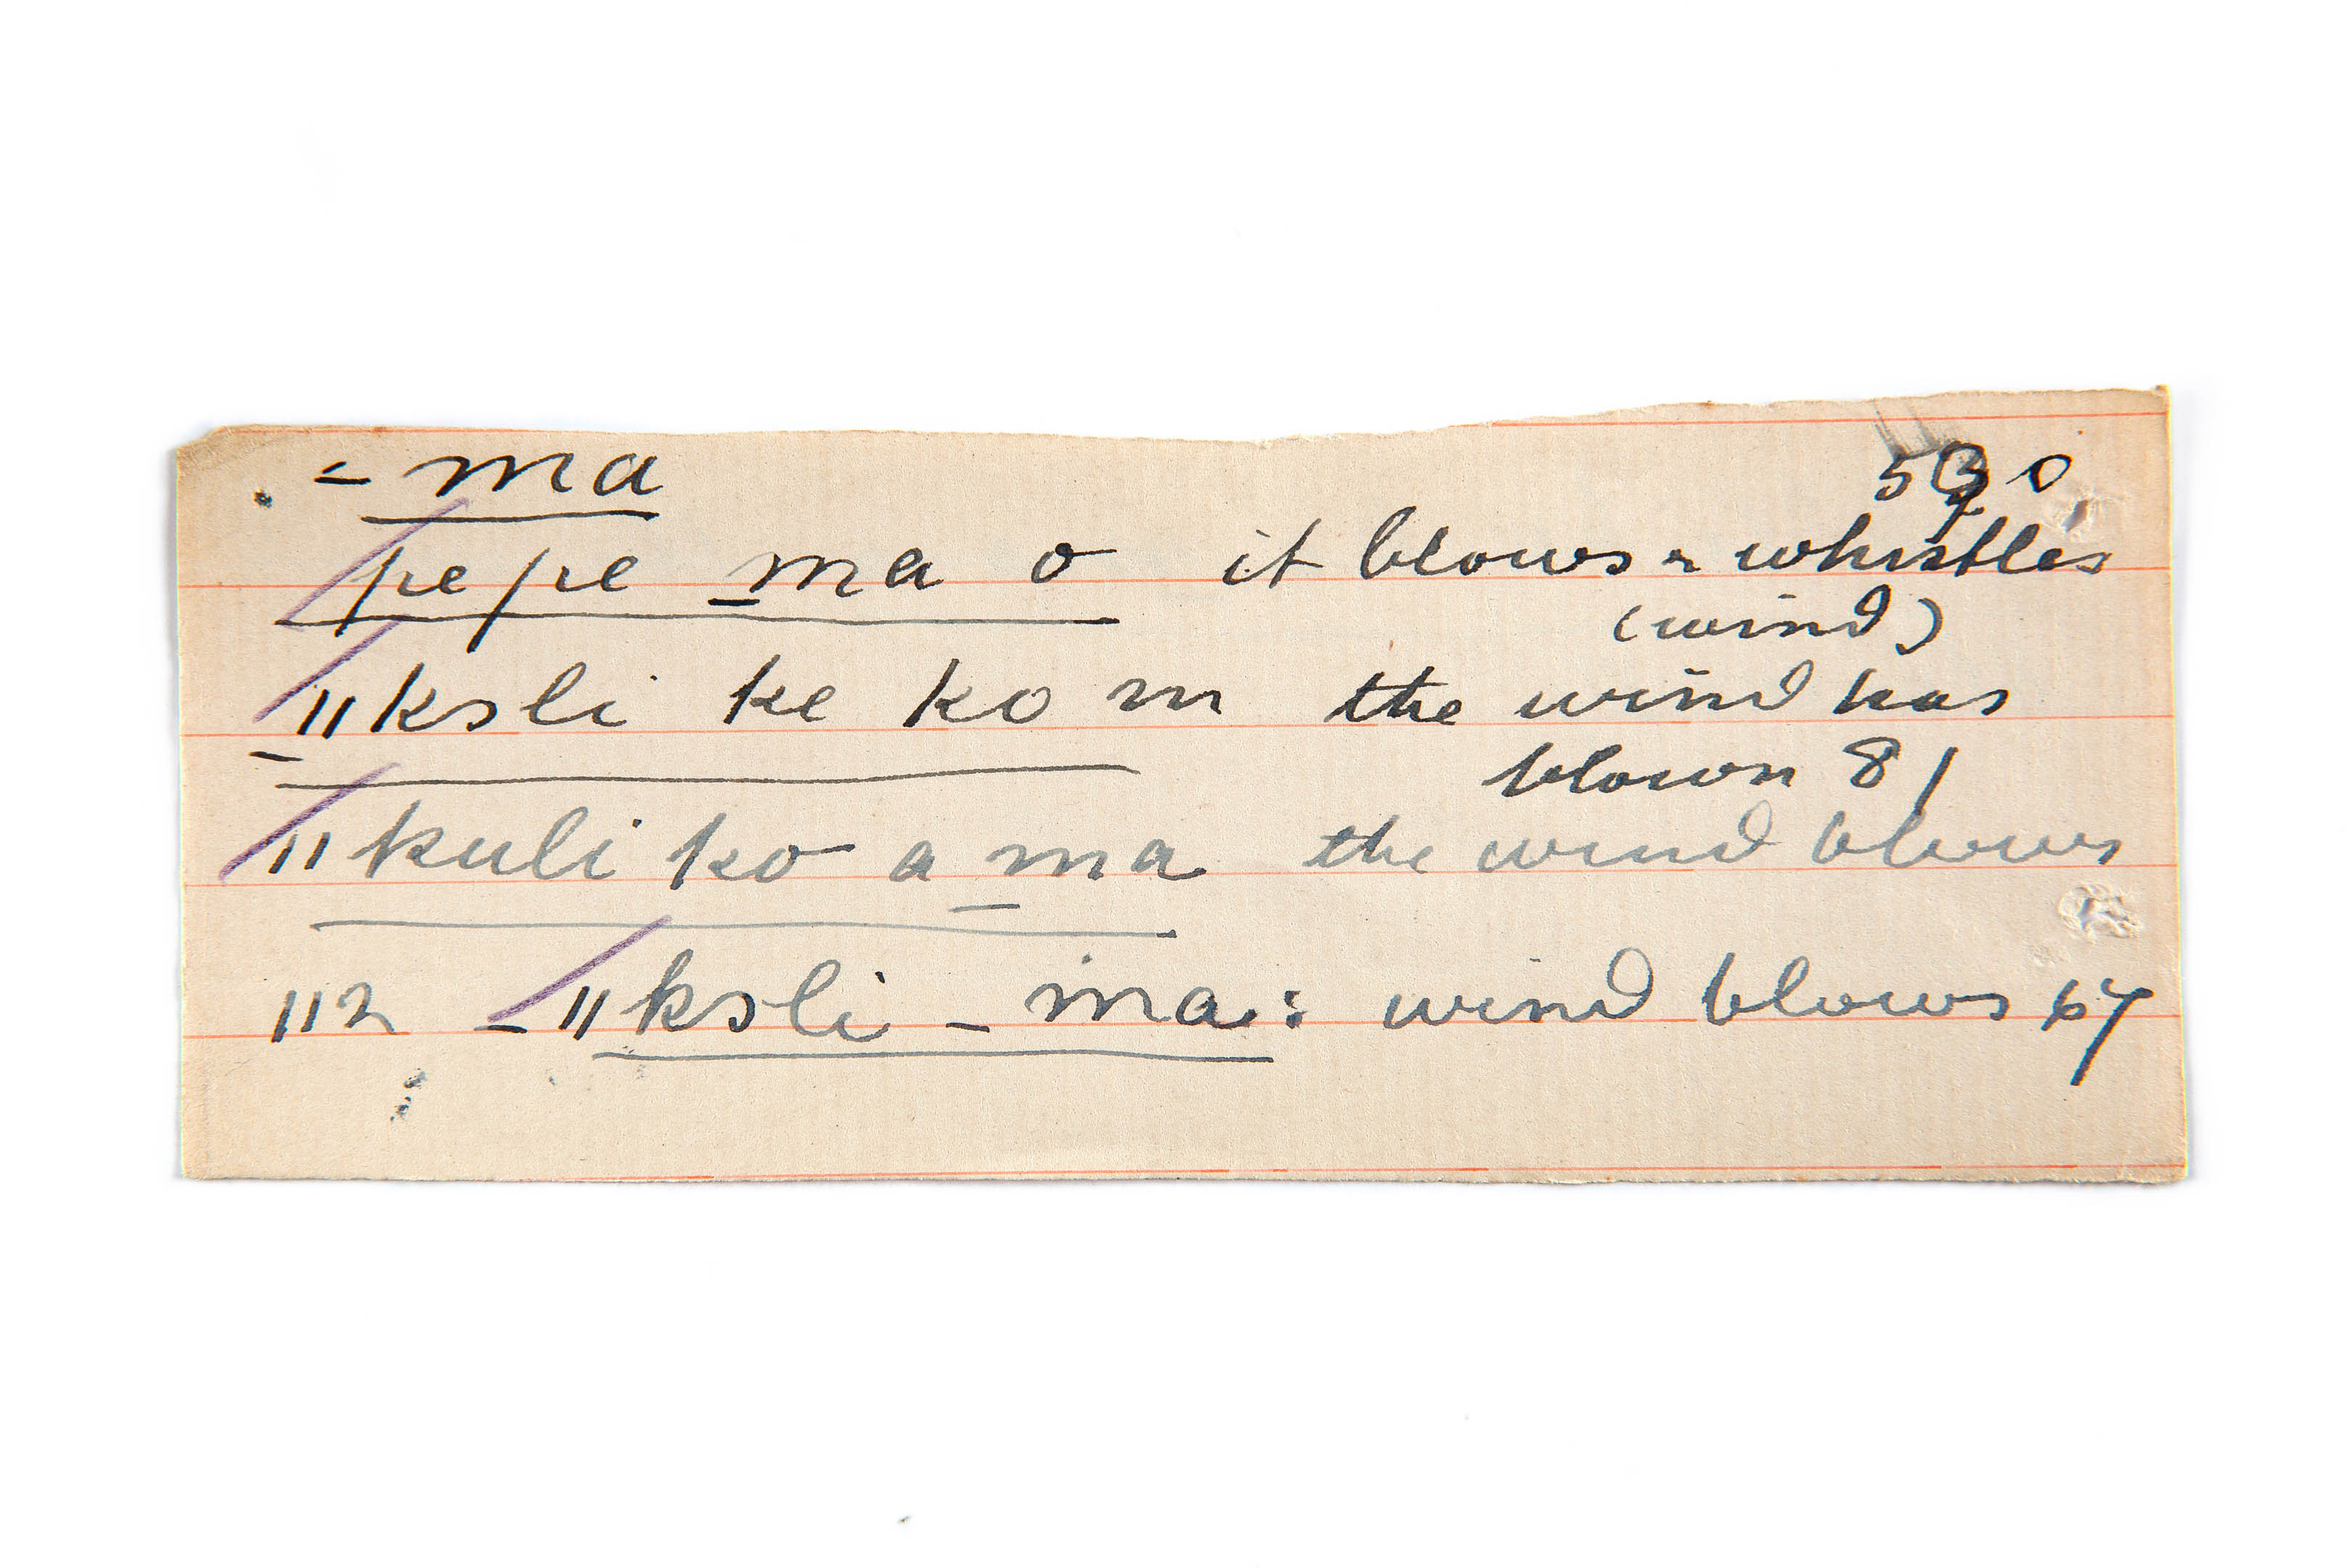 - ma 530
pepe ma o it blows or whistles
(wind)
ǁkɜli ke ko m the wind has
blown 81
ǁkuli ko a ma the wind blows
ǁn - ǁkɜli - ma: wind blows 67